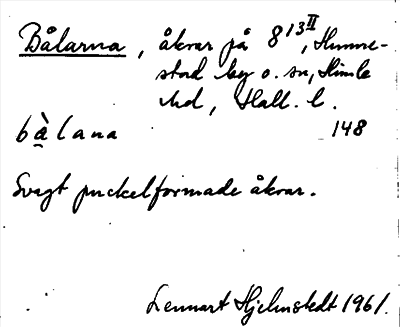 Bålarna, åkrar på 8¹³ᴵᴵ, Hunne-
stad by o. sn, Himle
hd, Hall. l.
bà̱lana 148
Svagt puckelformade åkrar.
Lennart Hjelmstedt 1961.